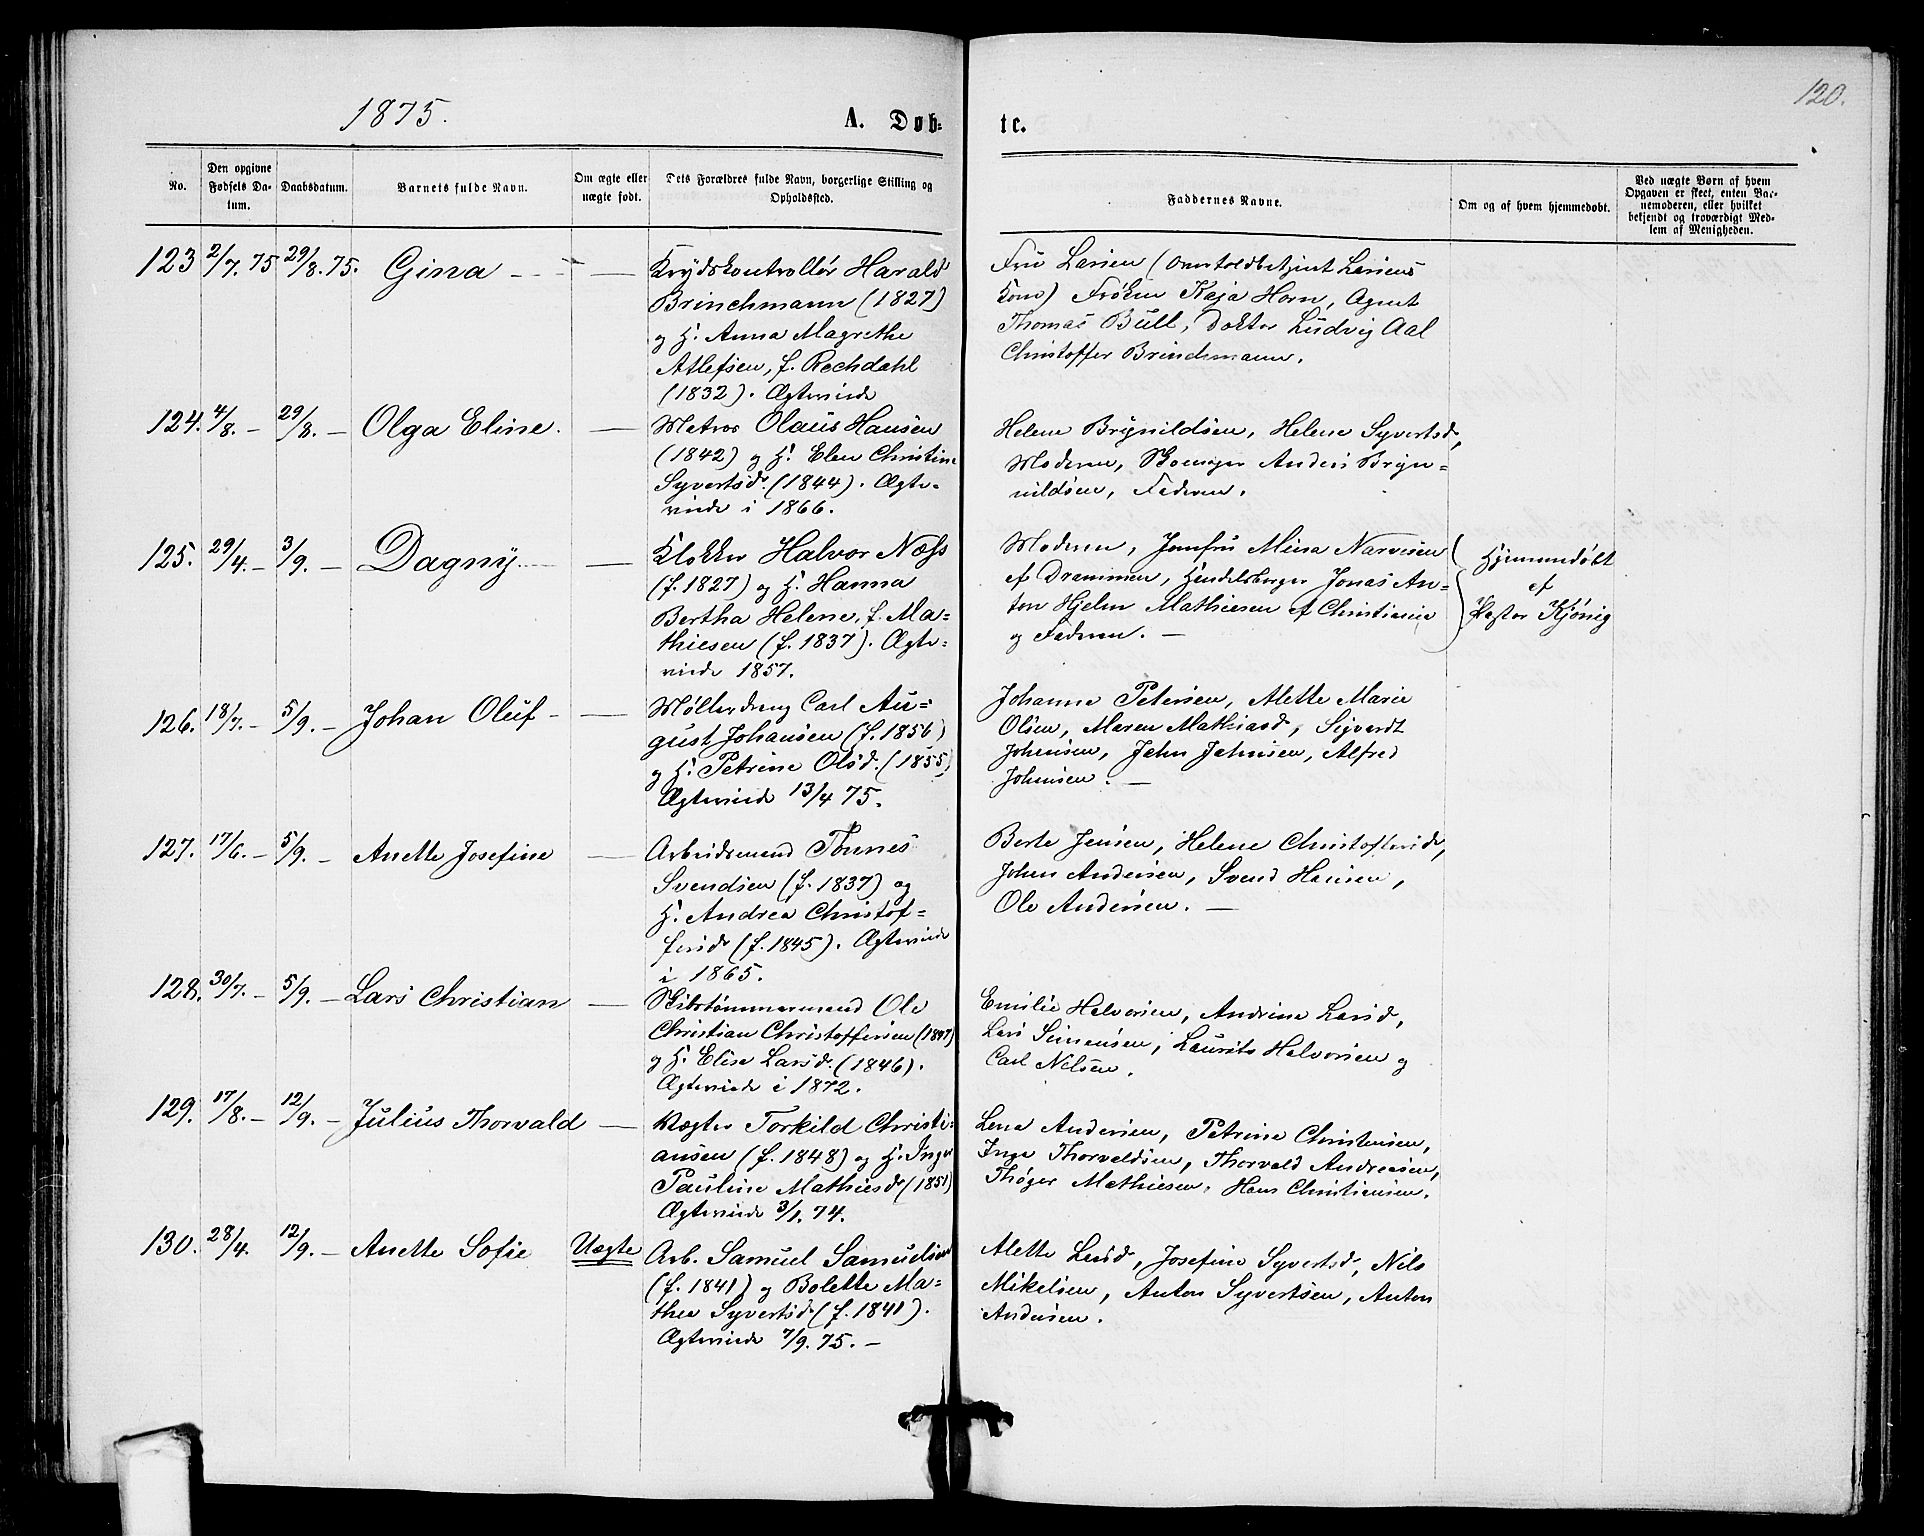 1875.
A. Døb-
te.
120.
No.
Den opgivne Fødsels Da-
tum.
Daabsdatum.
Barnets fulde Navn.
Om ægte eller
uægte født.
Dets Forældres fulde Navn, borgerlige Stilling og
Opholdssted.
Faddernes Navne.
Om og af hvem hjemmedøbt.
Ved uægte Børn af hvem
Opgaven er skeet, enten Bar-
nemoderen, eller hvilket
bekjendt og troværdigt Med-
lem af Menigheden.
123 2/7. 75 29/8. 75. Gina — —
Krydskontrollör Harald
Brinchmann (1827)
og H. Anna Magrethe
Atlefsen, f. Rechdahl
(1832). Ægteviede
Fru Larsen (Overtoldbetjent Larsens
Kone) Frøken Kaja Horn, Agent
Thomas Bull, Doktor Ludvig Aal
Christoffer Brinchmann.
124. 4/8. — 29/8. — Olga Eline. —
Matros Olaus Hansen
(1842) og H. Elen Christine
Syvertsd. (1844). Ægte-
viede i 1866.
Helene Brynildsen, Helene Syvertsd,
Moderen, Anders Bryn-
nildsen, Faderen.
125. 29/4. — 3/9. — Dagny —
Klokker Halvor Næss
(f. 1827) og H. Hanna
Bertha Helene, f. Ma-
thiesen (f. 1837). Ægte-
viede 1857.
Moderen, Jomfru Mina Narvesen
af Drammen, Handelsborger Jonas An-
ton Hjelm Mathiesen af Christiania
og Faderen. —
Hjemmedøbt
af
Pastor Kjönig
126. 18/7. — 5/9. — Johan Oluf — —
Møllerdreng Carl Au-
gust Johansen (f. 1856)
og H. Petrine Olsd. (1855)
Ægteviede 13/4 75.
Johanne Petersen, Alette Marie
Olsen, Maren Mathiasd, Syverdt
Johnsen, John Johnsen, Alfred
Johnsen. —
127. 17/6. — 5/9. — Anette Josefine —
Arbeidsmand Tönnes
Svendsen (f. 1837) og
H. Andrea Christof-
fersd. (f. 1845). Ægteviede
i 1865.
Berte Jensen, Helene Christoffersd,
Johan Andersen, Svend Hansen,
Ole Andersen. —
128. 30/7. — 5/9. — Lars Christian —
Skibstømmermand Ole
Christian Christoffersen (1847)
og H. Elise Larsd. (1846).
Ægteviede i 1872.
Emilie Halvorsen, Andrine Larsd,
Lars Simensen, Laurits Halvorsen og
Carl Nilsen.
129. 17/8. — 12/9. — Julius Thorvald —
Torkild Christi-
ansen (f. 1848) og H. Inger
Pauline Mathiesd. (1851)
Ægteviede 3/1. 74.
Lena Andersen, Petrine Christensen,
Inge Thorvaldsen, Thorvald Andreasen,
Thøger Mathiesen, Hans Christiansen.
130. 28/4. 12/9. — Anette Sofie Uægte
Arb. Samuel Samuelsen
(f. 1841) og Bolette Ma-
thea Syvertsd (f. 1841).
Ægteviede 7/9. 75. —
Alette Larsd, Josefine Syvertsd, Nils
Mikelsen, Anton Syvertsen, Anton
Andersen.